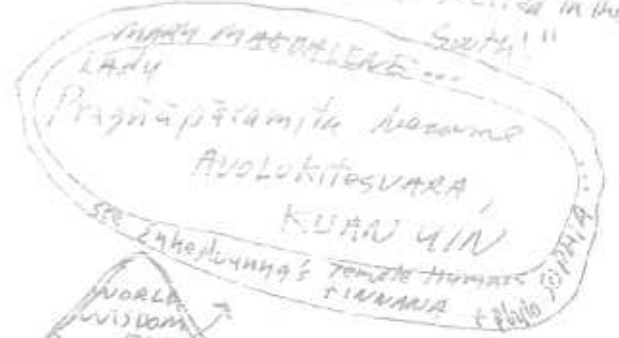 in the
South!"
MARY MAGDALENE ...
LADY
Prajñāpāramita became
AVOLOKITESVARA,
KUAN YIN
SEE Enheduanna's Temple Hymns
+ INNANA
+ SOPHIA ...
WORLD
WISDOM